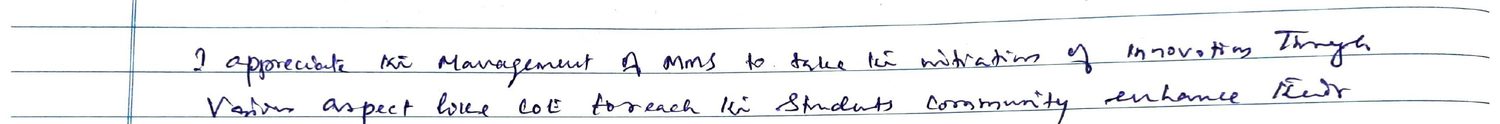 I appreciate the Management of MMS to take the initiation of innovation Through
Various aspect like COE to reach the Students Community enhance their